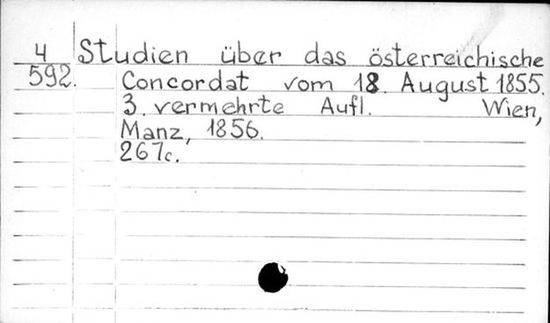 4 Studien über das österreichische
592. Concordat vom 18. August 1855.
3. vermehrte Aufl. Wien,
Manz, 1856.
267c.